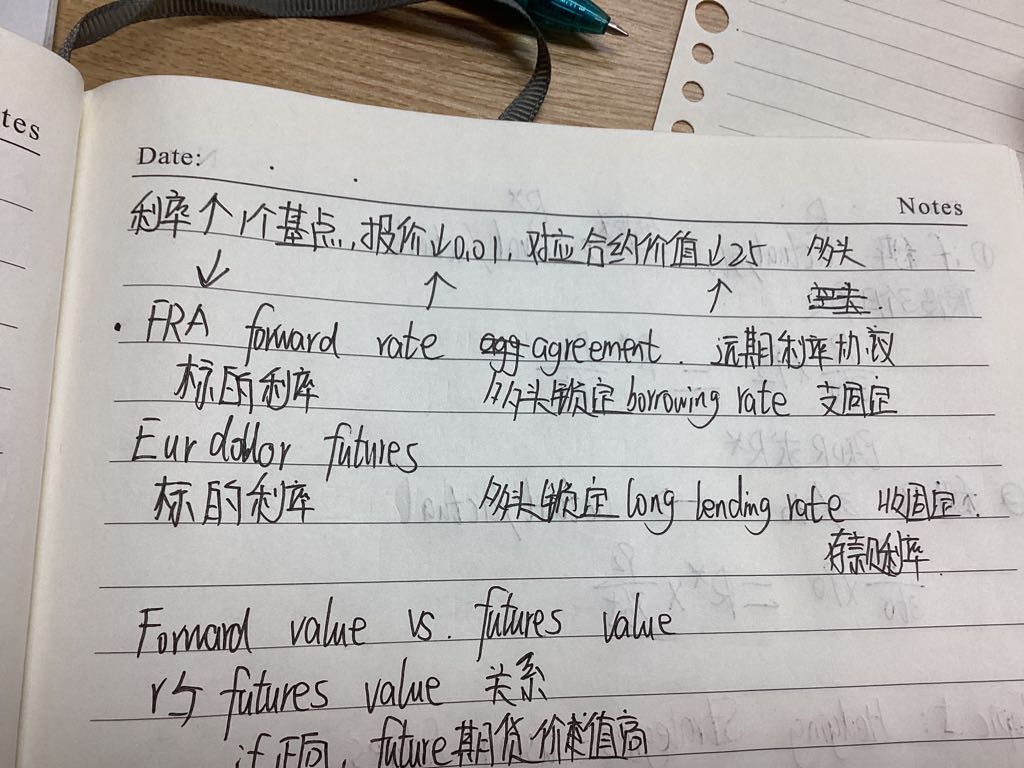 tes
Date:
Notes
利率↑1个基点,报价↓0.01,对应合约价值↓25 多头
↓ ↑ ↑
·FRA forward rate agreement. 远期利率协议
标的利率 多头锁定 borrowing rate 支固定
Eurdollor futures
标的利率 多头锁定 long lending rate 收固定.
存款利率
Forward value vs. futures value
r与 futures value 关系
if正向, future期货价值高